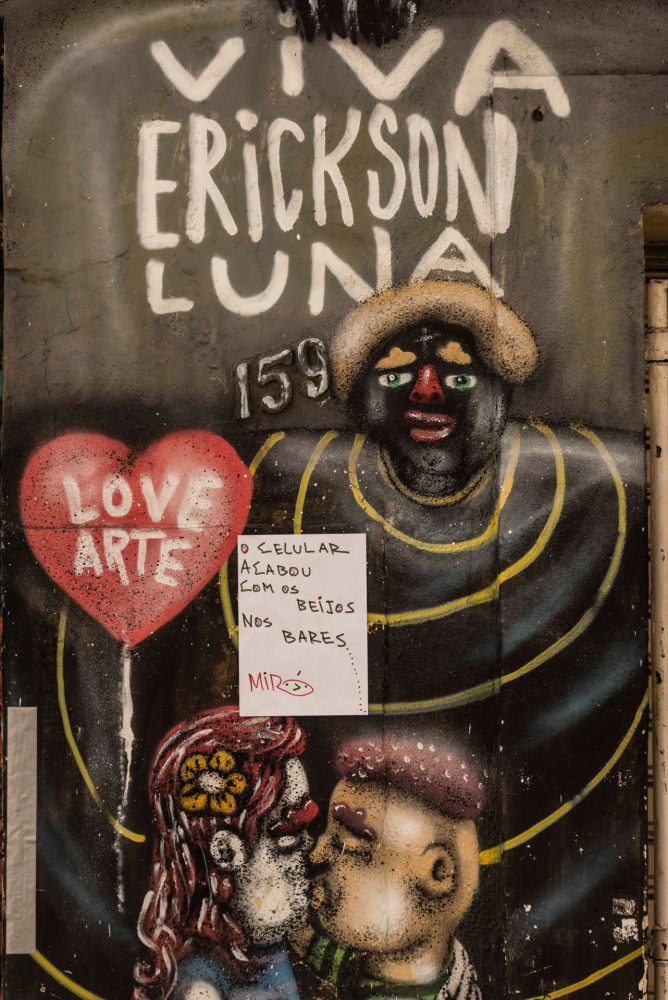 VIVA
ERICKSON
LUNA
159
LOVE
ARTE
O CELULAR
ACABOU
COM OS
BEIJOS
NOS
BARES
MIRÓ